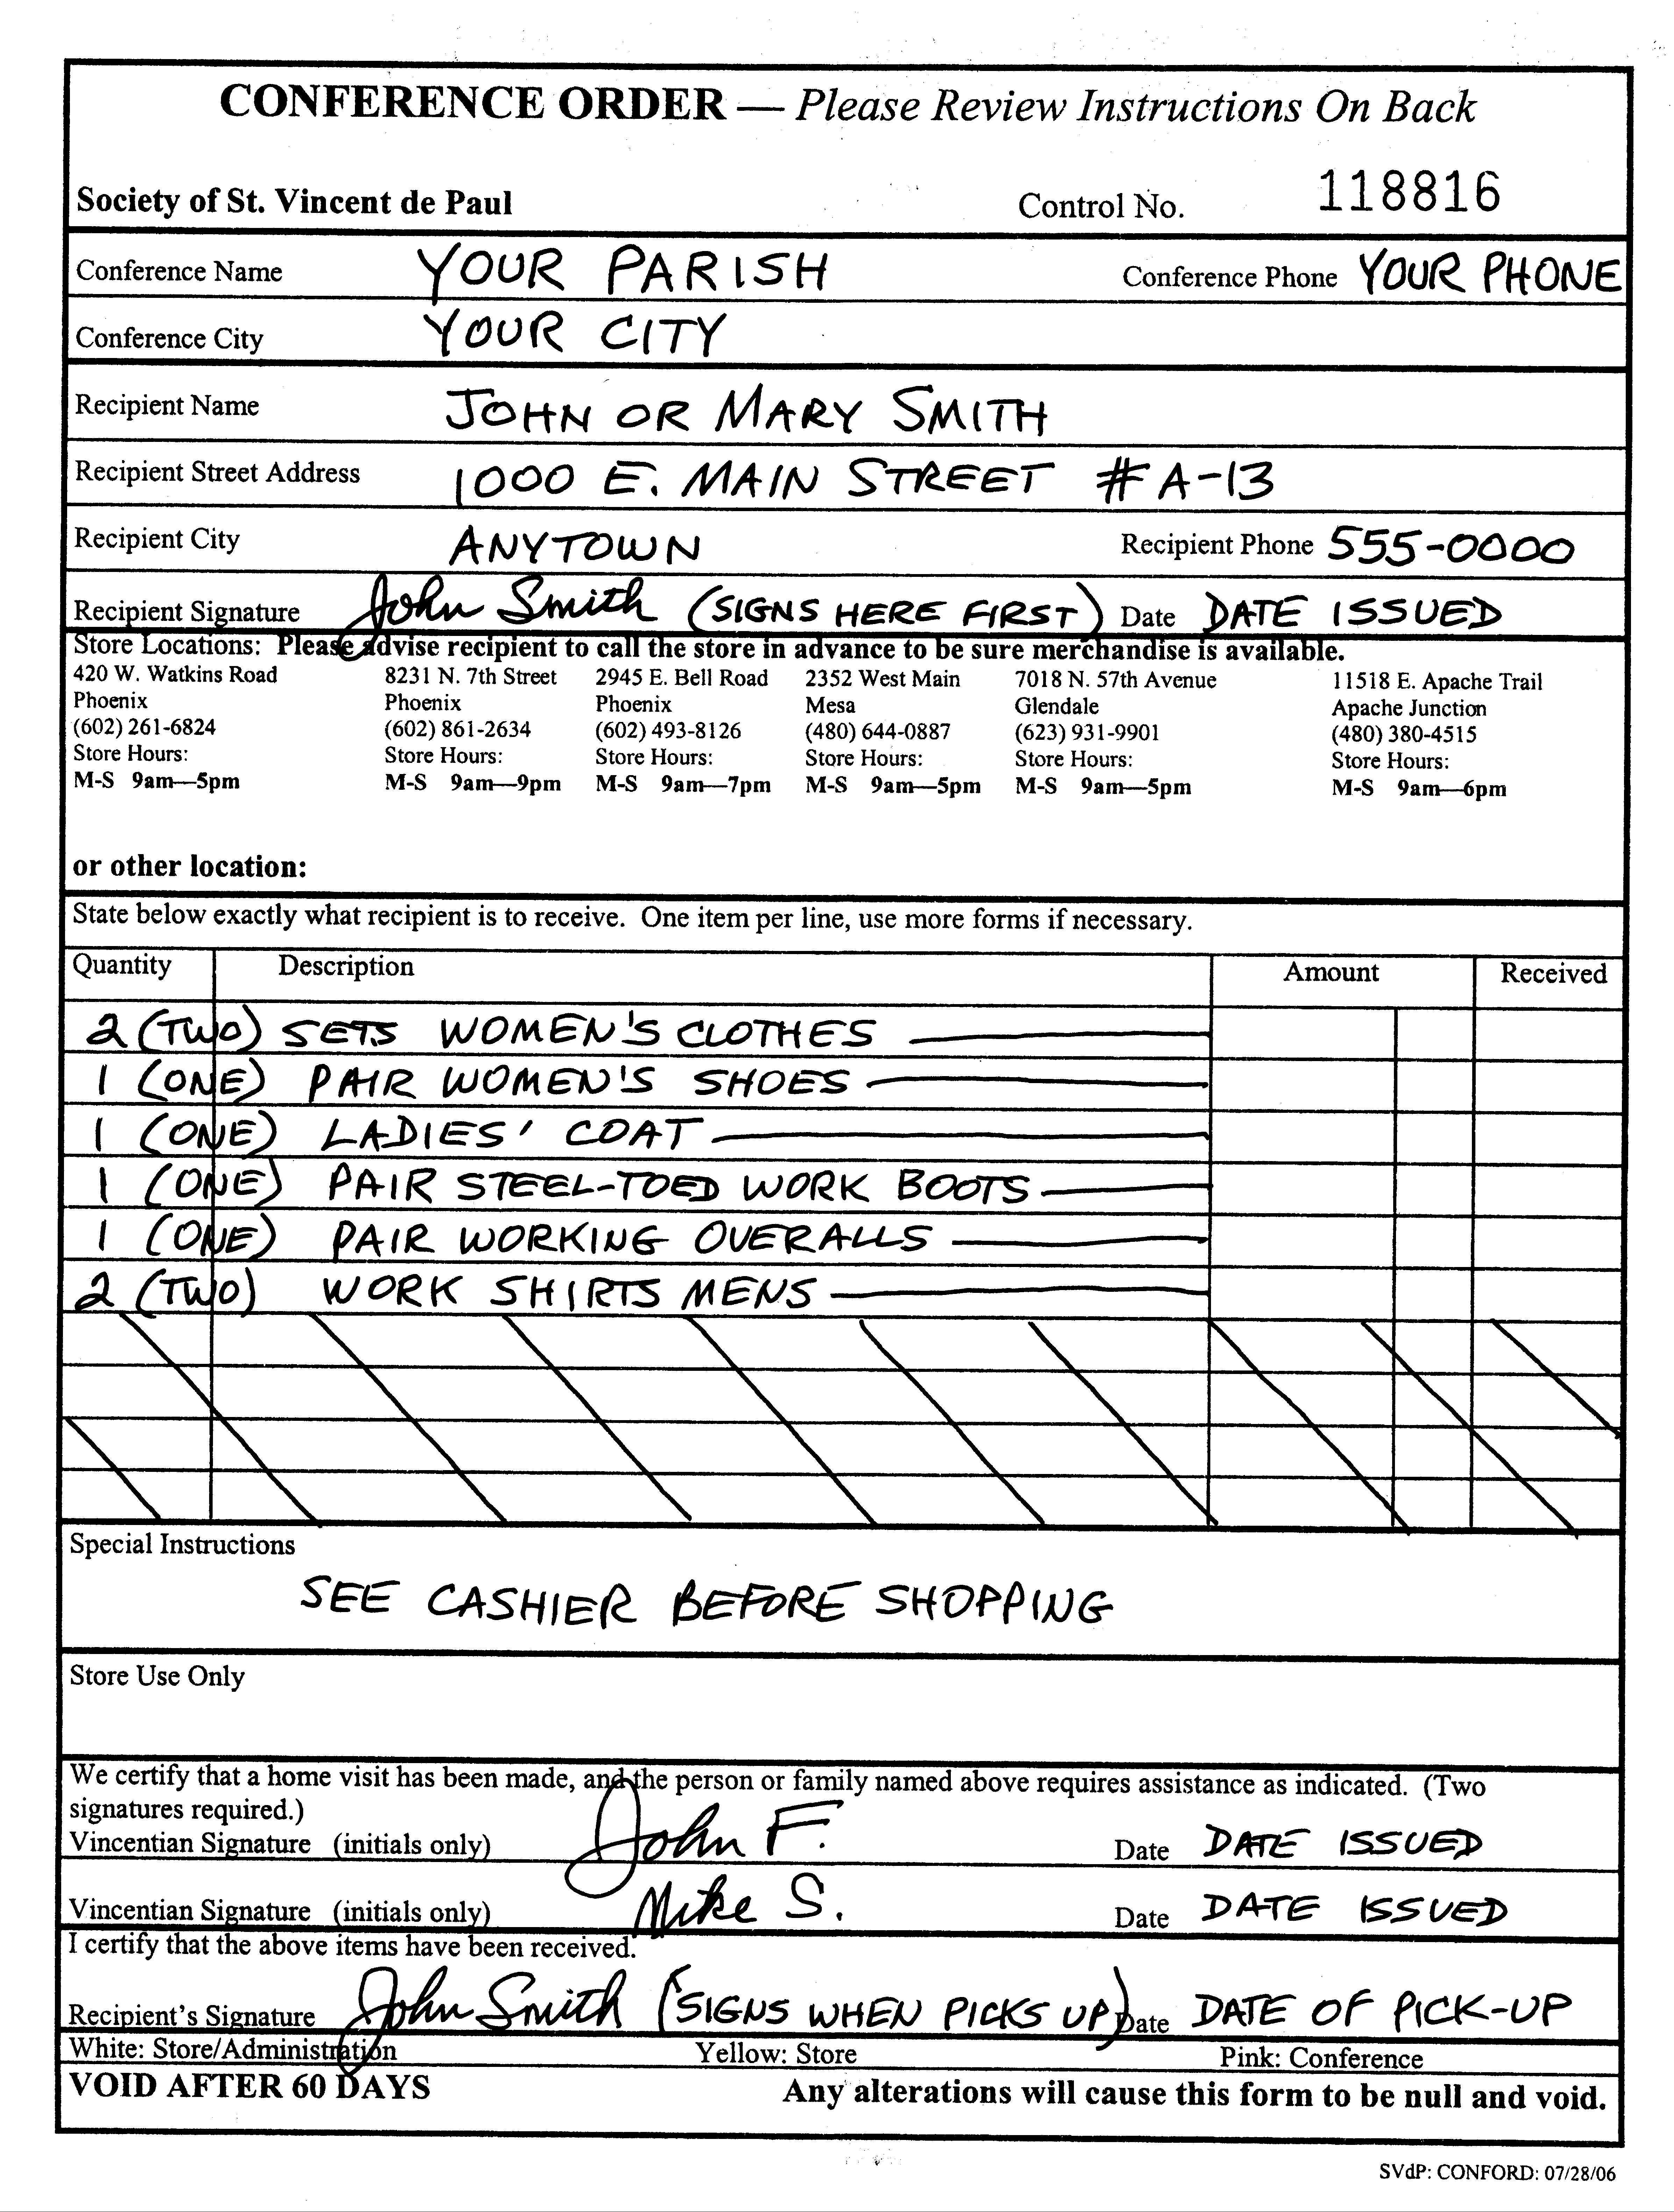 CONFERENCE ORDER — Please Review Instructions On Back
Society of St. Vincent de Paul Control No. 118816
Conference Name YOUR PARISH Conference Phone YOUR PHONE
Conference City YOUR CITY
Recipient Name JOHN OR MARY SMITH
Recipient Street Address 1000 E. MAIN STREET # A-13
Recipient City ANYTOWN Recipient Phone 555-0000
Recipient Signature John Smith (SIGNS HERE FIRST) Date DATE ISSUED
Store Locations: Please advise recipient to call the store in advance to be sure merchandise is available.
420 W. Watkins Road 8231 N. 7th Street 2945 E. Bell Road 2352 West Main 7018 N. 57th Avenue 11518 E. Apache Trail
Phoenix Phoenix Phoenix Mesa Glendale Apache Junction
(602) 261-6824 (602) 861-2634 (602) 493-8126 (480) 644-0887 (623) 931-9901 (480) 380-4515
Store Hours: Store Hours: Store Hours: Store Hours: Store Hours: Store Hours:
M-S 9am—5pm M-S 9am—9pm M-S 9am—7pm M-S 9am—5pm M-S 9am—5pm M-S 9am—6pm
or other location:
State below exactly what recipient is to receive. One item per line, use more forms if necessary.
Quantity Description Amount Received
2 (TWO) SETS WOMEN'S CLOTHES
1 (ONE) PAIR WOMEN'S SHOES
1 (ONE) LADIES' COAT
1 (ONE) PAIR STEEL-TOED WORK BOOTS
1 (ONE) PAIR WORKING OVERALLS
2 (TWO) WORK SHIRTS MENS
Special Instructions
SEE CASHIER BEFORE SHOPPING
Store Use Only
We certify that a home visit has been made, and the person or family named above requires assistance as indicated. (Two
signatures required.)
Vincentian Signature (initials only) John F. Date DATE ISSUED
Vincentian Signature (initials only) Mike S. Date DATE ISSUED
I certify that the above items have been received.
Recipient's Signature John Smith (SIGNS WHEN PICKS UP) Date DATE OF PICK-UP
White: Store/Administration Yellow: Store Pink: Conference
VOID AFTER 60 DAYS Any alterations will cause this form to be null and void.
SVdP: CONFORD: 07/28/06